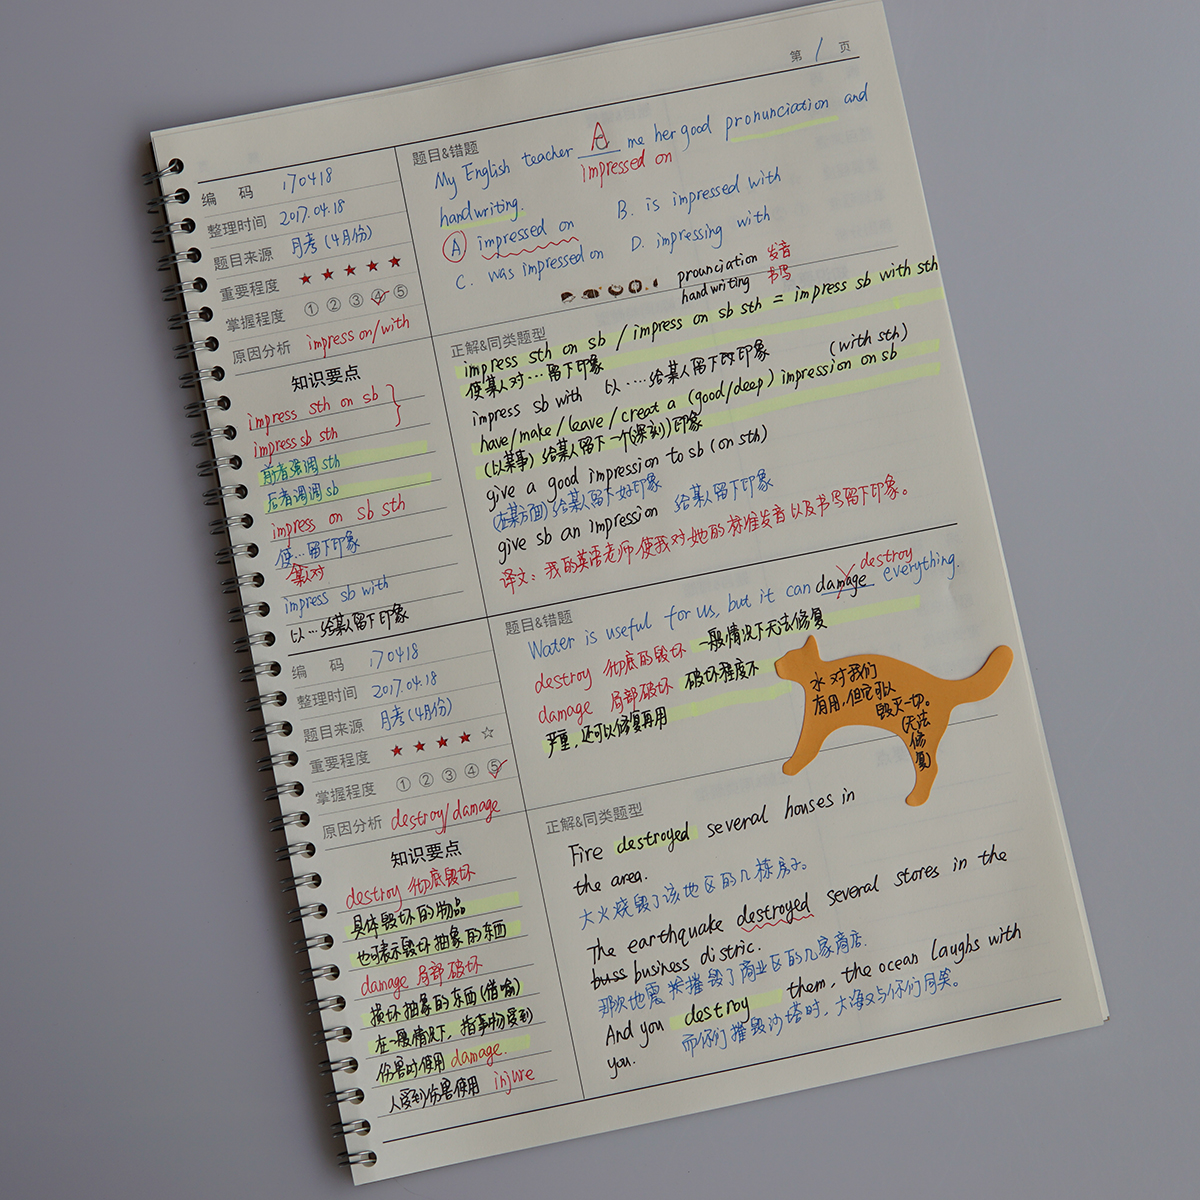 第 1 页
编 码 170418
整理时间 2017.04.18
题目来源 月考(4月份)
重要程度 ★ ★ ★ ★ ★
掌握程度 ① ② ③ ④ ⑤
原因分析 impress on/with
知识要点
impress sth on sb
impress sb sth
前者强调 sth
后者调调 sb
impress on sb sth
使…留下印象
某对
impress sb with
以…给某人留下印象
题目&错题
My English teacher A me her good pronunciation and
impressed on
handwriting.
A impressed on B. is impressed with
C. was impressed on D. impressing with
prounciation 发音
handwriting 书写
正解&同类题型
impress sth on sb / impress on sb sth = impress sb with sth
使某人对…留下印象
impress sb with 以….给某人留下印象 (with sth)
have/make/leave/creat a (good/deep) impression on sb
(以某事)给某人留下一个(深刻)印象
give a good impression to sb (on sth)
(在某方面)给某人留下好印象
give sb an impression 给某人留下印象
译文: 我的英语老师使我对她的标准发音以及书写留下印象。
编 码 170418
整理时间 2017.04.18
题目来源 月考(4月份)
重要程度 ★ ★ ★ ★ ☆
掌握程度 ① ② ③ ④ ⑤
原因分析 destroy/damage
知识要点
destroy 彻底毁坏
具体毁坏的物品
也可表示毁坏抽象的东西
damage 局部破坏
损坏抽象的东西(借喻)
在一般情况下，指事物受到
伤害时使用 damage.
人受到伤害使用 injure
题目&错题
destroy
Water is useful for us, but it can damage everything.
destroy 彻底的毁坏 一般情况下无法修复
damage 局部破坏 破坏程度不
严重，还可以修复再用
水对我们
有用,但它可以
毁灭一切。
(无法
修
复)
正解&同类题型
Fire destroyed several houses in
the area.
大火烧毁了该地区的几栋房子。
The earthquake destroyed several stores in the
buss business distric.
那次地震摧毁了商业区的几家商店.
And you destroy them, the ocean laughs with
you. 而你们摧毁沙塔时，大海又与你们同笑。